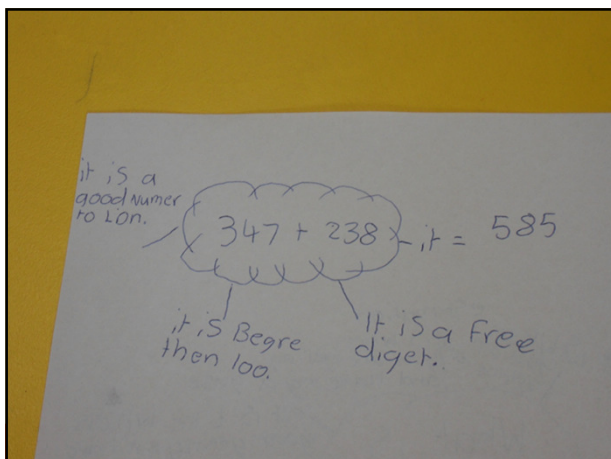 it is a
good Numer
to Lion.
347 + 238
it = 585
it is Begre
then 100.
It is a Free
diget.